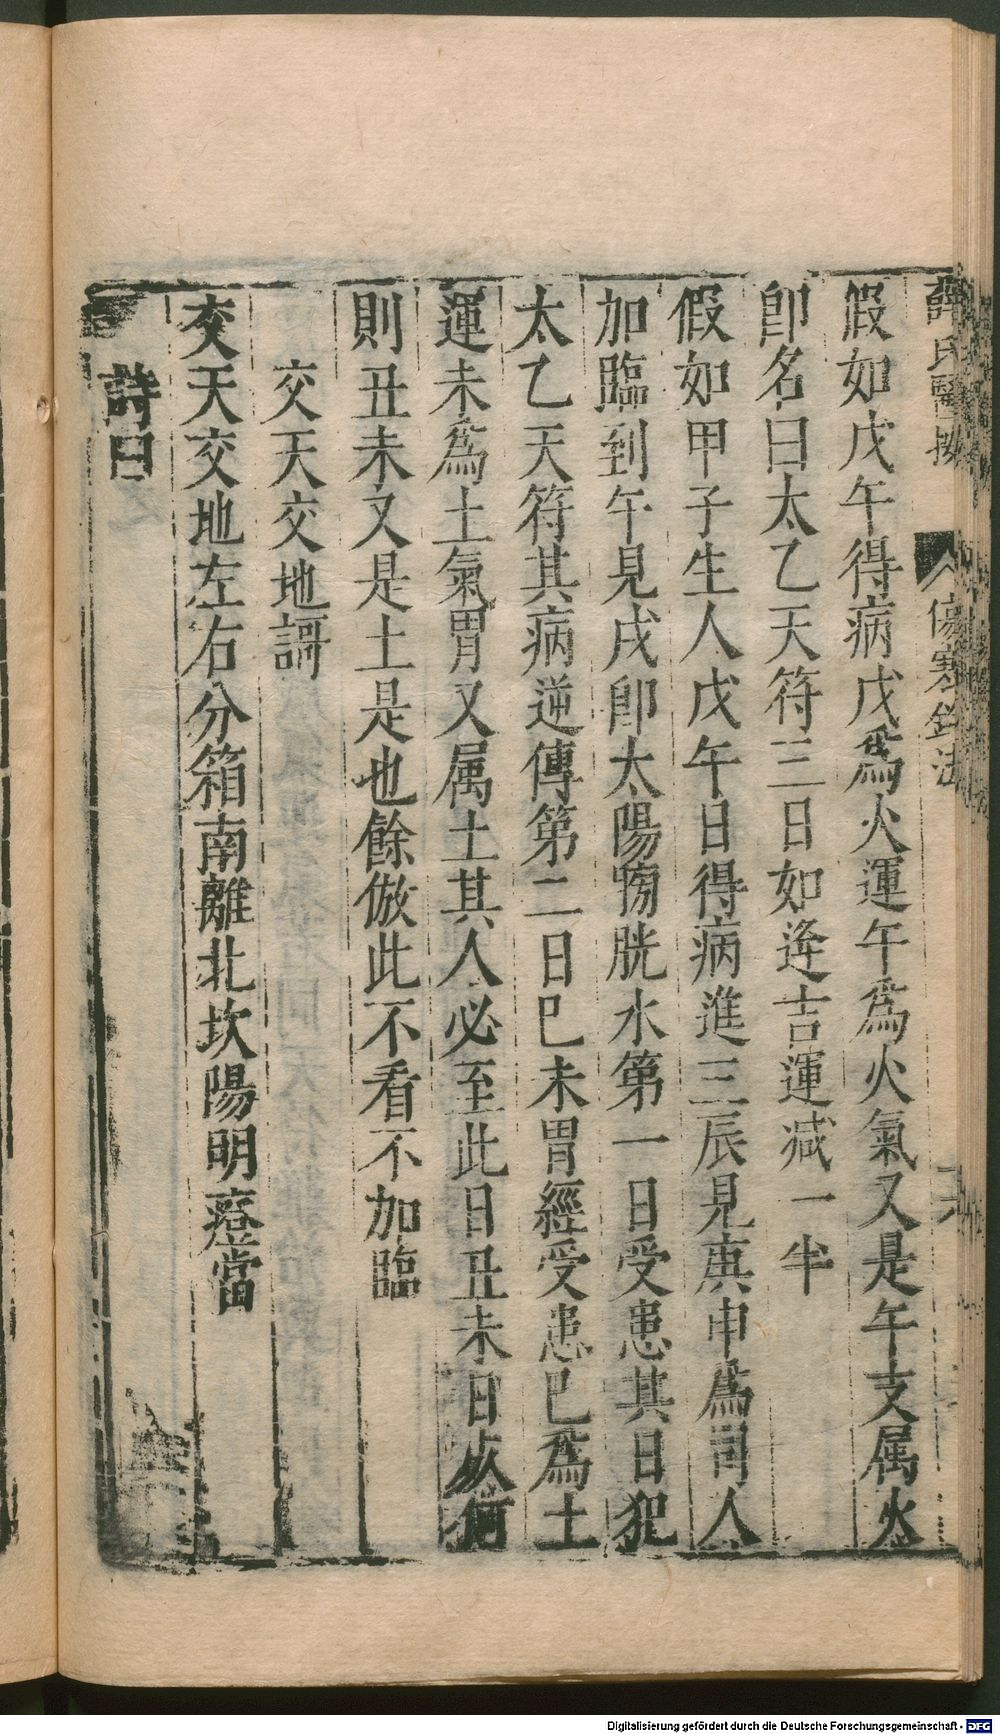 薛氏醫按 傷寒鈐法
假如戊午得病戊為火運午為火氣又是午支属火
即名曰太乙天符三日如逄吉運减一半
假如甲子生人戊午日得病進三辰見庚申為司人
加臨到午見戌即太陽膀胱水第一日受患其日犯
太乙天符其病逆傳第二日巳未胃經受患巳為土
運未為土氣胃又属土其人必至此日丑未日
則丑未又是土是也餘倣此不看不加臨
交天交地謌
交天交地左右分箱南離北坎陽明證當
詩曰
Digitalisierung gefördert durch die Deutsche Forschungsgemeinschaft - DFG